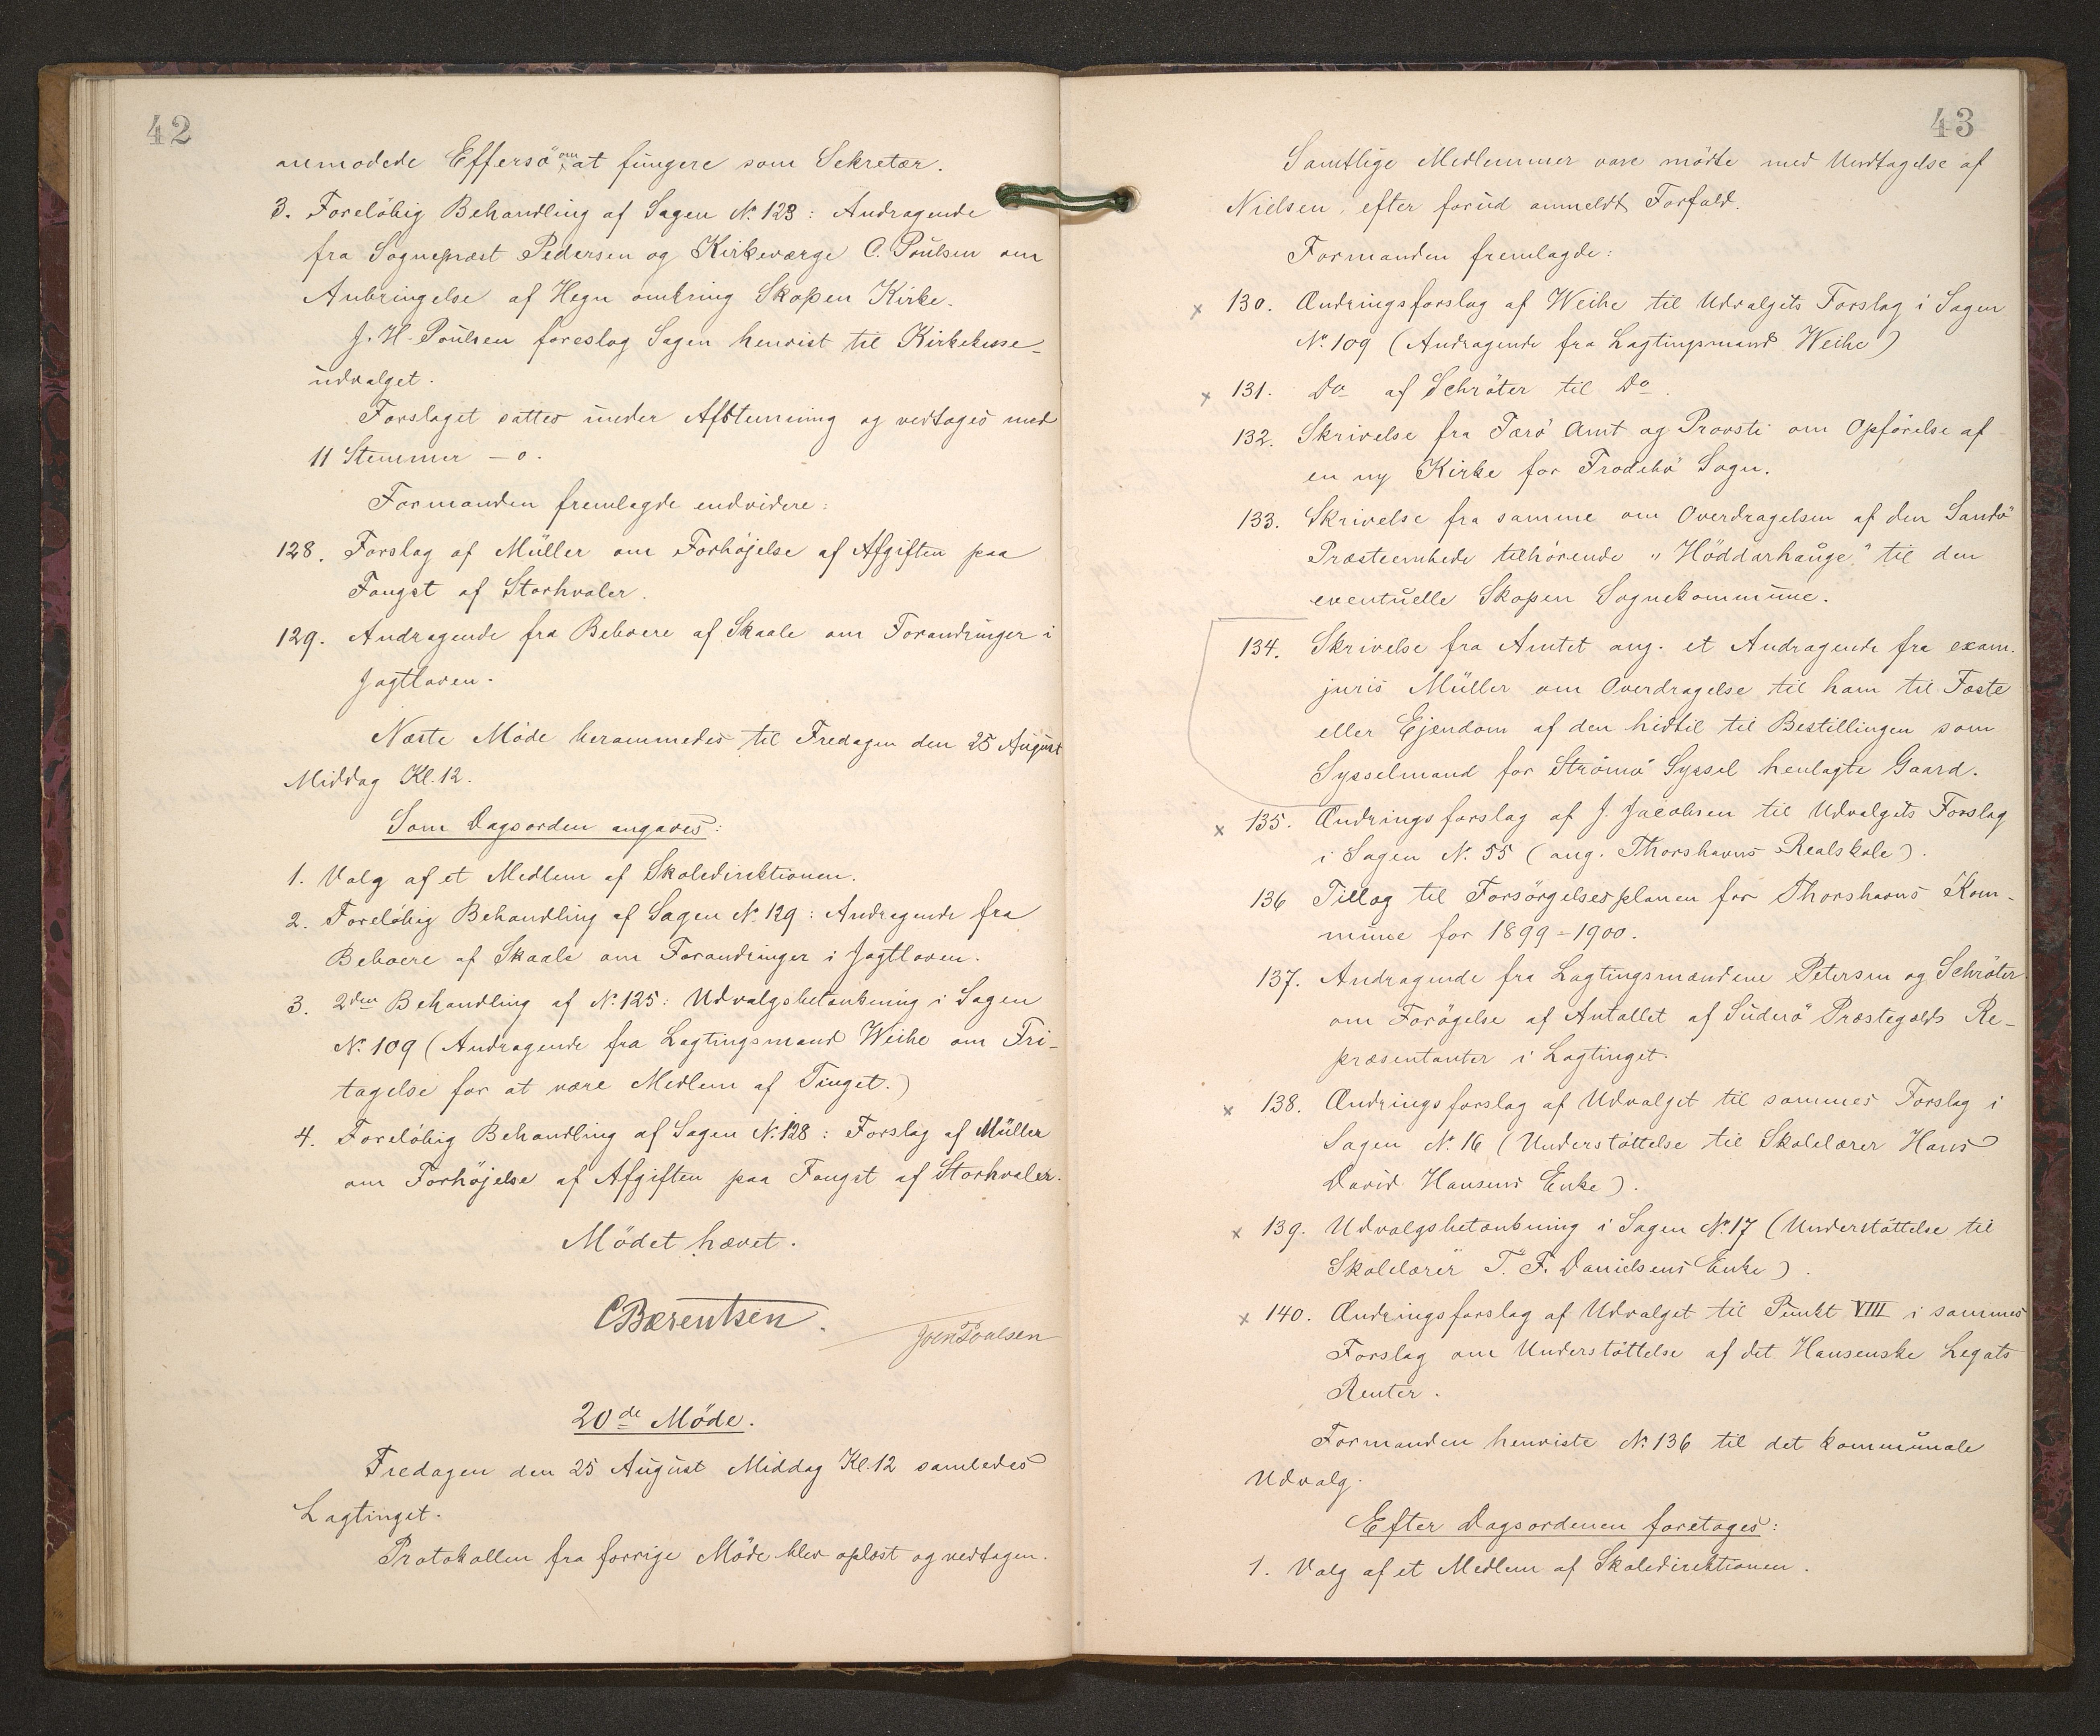 42
anmodede Effersö om at fungere som Sekretær.
3. Foreløbig Behandling af Sagen No. 123: Andragende
fra Sognepræst Pedersen og Kirkeværge C. Poulsen om
Anbringelse af Hegn omkring Skopen Kirke.
J. H. Poulsen foreslog Sagen henvist til Kirkekasse-
udvalget.
Forslaget sattes under Afstemning og vedtoges med
11 Stemmer – 0.
Formanden fremlagde endvidere:
128. Forslag af Müller om Forhöjelse af Afgiften paa
Fangst af Storhvaler.
129. Andragende fra Beboere af Skaale om Forandringer i
Jagtloven.
Næste Möde berammedes til Fredagen den 25 August
Middag Kl. 12.
Som Dagsorden angaves:
1. Valg af et Medlem af Skoledirektionen.
2. Forelöbig Behandling af Sagen No. 129: Andragende fra
Beboere af Skaale om Forandringer i Jagtloven.
3. 2den Behandling af No. 125: Udvalgsbetænkning i Sagen
No. 109 (Andragende fra Lagtingsmand Weihe om Fri-
tagelse for at være Medlem af Tinget.)
4. Forelöbig Behandling af Sagen No. 128: Forslag af Müller
om Forhöjelse af Afgiften paa Fangst af Storhvaler.
Mödet hævet.
CBærentsen.
Joen Poulsen
20de Möde.
Fredagen den 25 August Middag Kl. 12 samledes
Lagtinget.
Protokollen fra forrige Möde blev oplæst og vedtagen.
43
Samtlige Medlemmer vare mödte med Undtagelse af
Nielsen, efter forud anmeldt Forfald.
Formanden fremlagde:
x 130. Ændringsforslag af Weihe til Udvalgets Forslag i Sagen
No. 109 (Andragende fra Lagtingsmand Weihe)
x 131. Do af Schröter til Do.
132. Skrivelse fra Færö Amt og Provsti om Opförelse af
en ny Kirke for Frodebö Sogn.
133. Skrivelse fra samme om Overdragelsen af den Sandö
Præsteembede tilhörende "Höddarhauge" til den
eventuelle Skopen Sognekommune.
134. Skrivelse fra Amtet ang. et Andragende fra exam.
juris Müller om Overdragelse til ham til Fæste
eller Ejendom af den hidtil til Bestillingen som
Sysselmand for Strömö Syssel henlagte Gaard.
x 135. Ændringsforslag af J. Jacobsen til Udvalgets Forslag
i Sagen No. 55 (ang. Thorshavns Realskole).
136 Tillæg til Forsörgelsesplanen for Thorshavns Kom-
mune for 1899–1900.
137. Andragende fra Lagtingsmændene Petersen og Schröter
om Forögelse af Antallet af Suderö Præstegælds Re-
præsentanter i Lagtinget.
x 138. Ændringsforslag af Udvalget til sammes Forslag i
Sagen No. 16 (Understöttelse til Skolelærer Hans
David Hansens Enke).
x 139. Udvalgsbetænkning i Sagen No. 17 (Understöttelse til
Skolelærer T. F. Danielsens Enke).
x 140. Ændringsforslag af Udvalget til Punkt VIII i sammes
Forslag om Understöttelse af det Hansenske Legats
Renter.
Formanden henviste No. 136 til det kommunale
Udvalg.
Efter Dagsordenen foretoges:
1. Valg af et Medlem af Skoledirektionen.